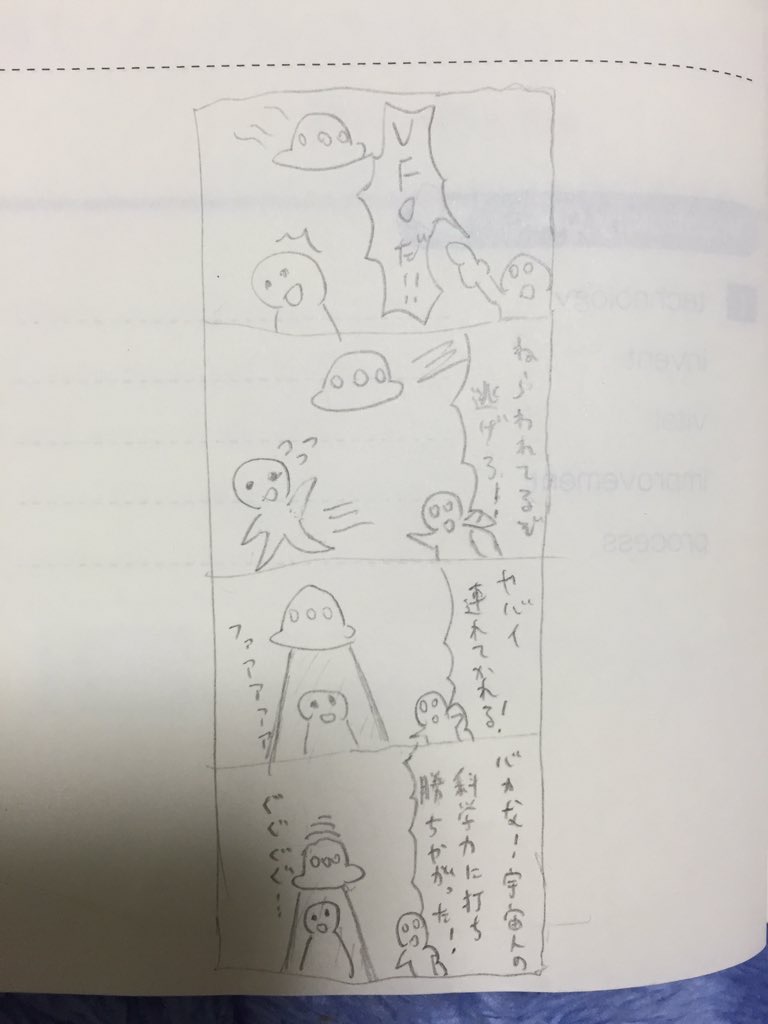 UFOだ!!
ねらわれてるぞ
逃げろ!!
ヤバイ
連れてかれる!
ファァァァァ
バカな!宇宙人の
科学力に打ち
勝ちやがった!
technology
invent
vital
improvement
process